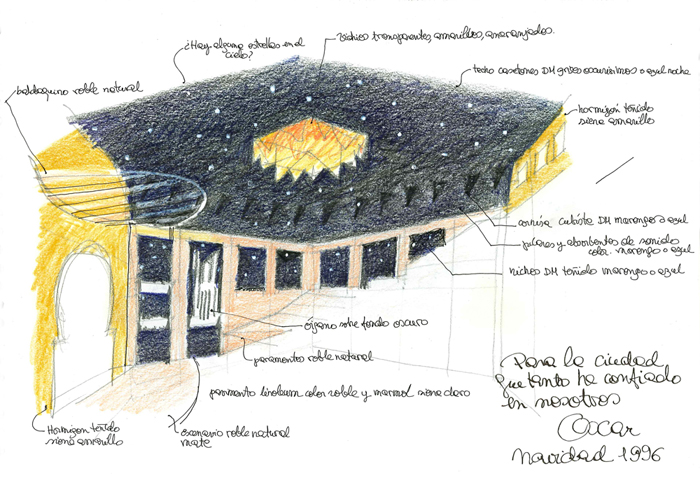 ¿Hay alguna estrella en el
cielo?
Vidrios transparentes, amarillos, anaranjados.
techo casetones DM grises oscurísimos o azul noche
baldaquino roble natural
hormigón teñido
siena amarillo
cornisa cubista DM marengo o azul
pilares y absorbentes de sonido
color marengo o azul
nichos DM teñido marengo o azul
órgano sobre fondo oscuro
paramentos roble natural
pavimento linoleum color roble y marmol siena claro
Hormigón teñido
siena amarillo
escenario roble natural
mate
Para la ciudad
que tanto ha confiado
en nosotros
Oscar
Navidad 1996